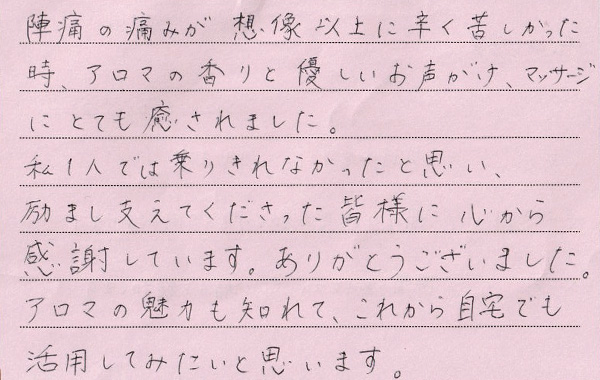 陣痛の痛みが想像以上に辛く苦しかった
時、アロマの香りと優しいお声がけ、マッサージ
にとても癒されました。
私1人では乗りきれなかったと思い、
励まし支えてくださった皆様に心から
感謝しています。ありがとうございました。
アロマの魅力も知れて、これから自宅でも
活用してみたいと思います。